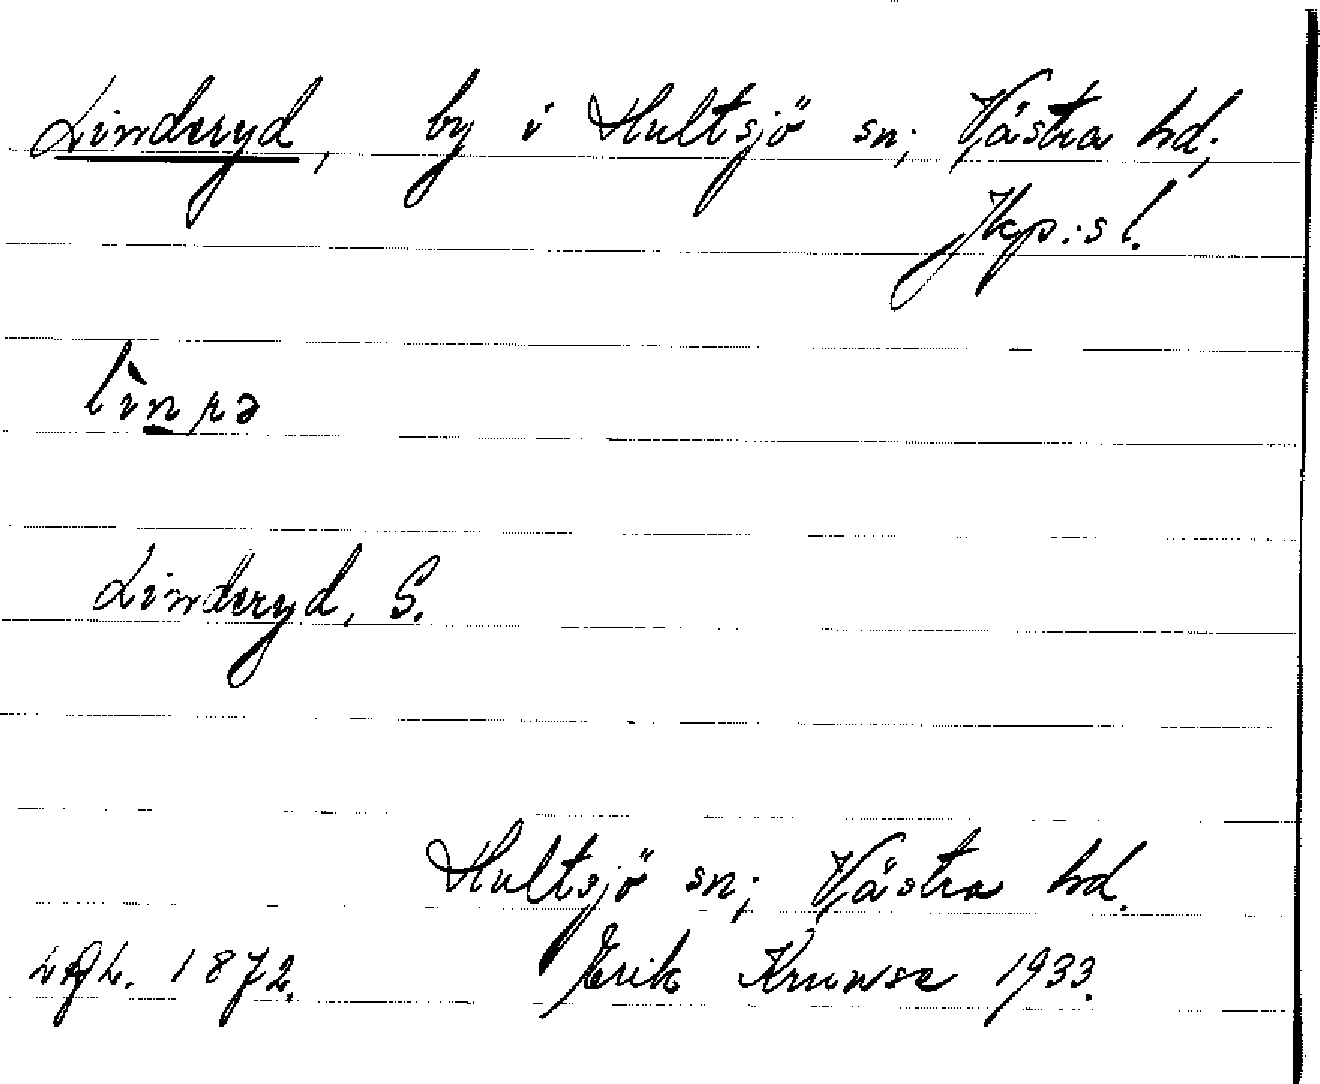 Linderyd, by i Hultsjö sn; Västra hd;
Jkp:s l.
lìn̲rə
Linderyd, S.
Hultsjö sn; Västra hd.
1872. Erik Kruuse 1933.